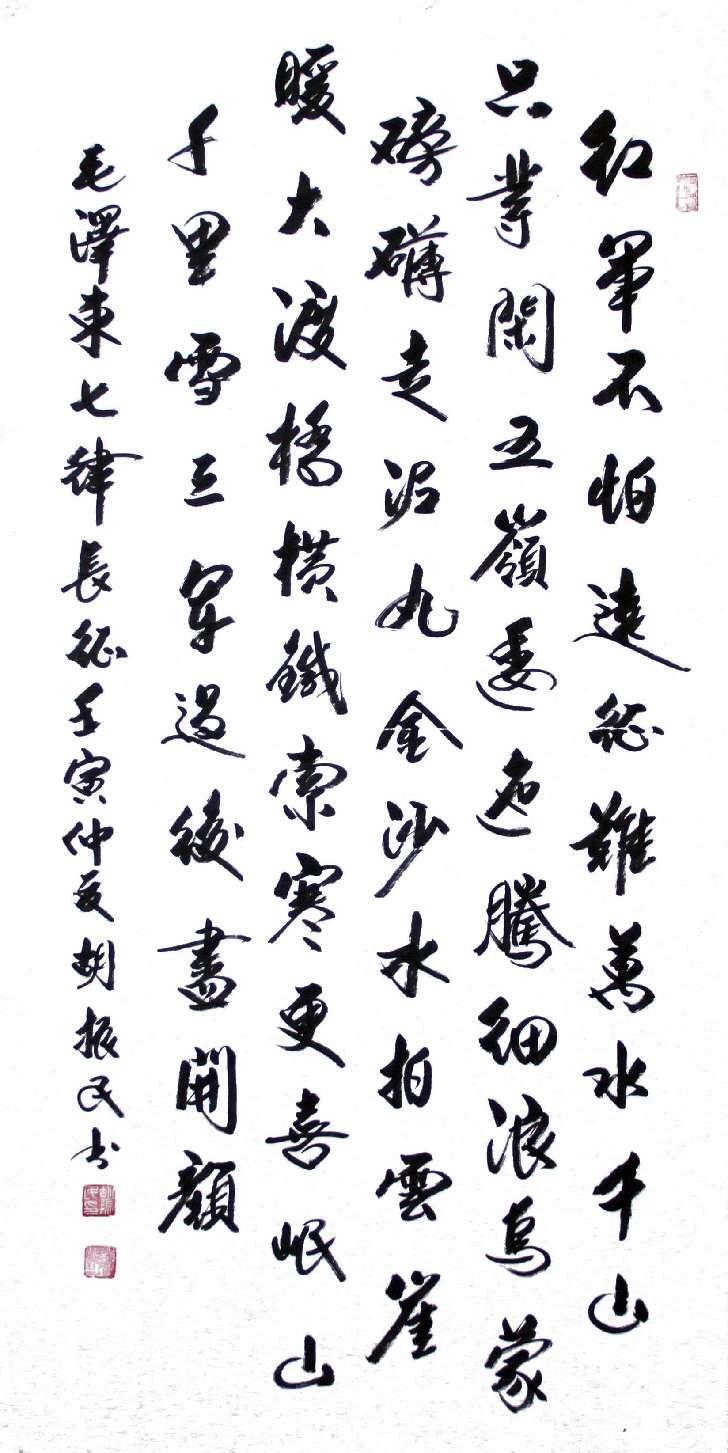 紅軍不怕遠征難萬水千山
只等閑五嶺逶迤騰細浪烏蒙
磅礴走泥丸金沙水拍雲崖
暖大渡橋橫鐵索寒更喜岷山
千里雪三軍過後盡開顏
毛澤東七律長征壬寅仲夏胡振民书